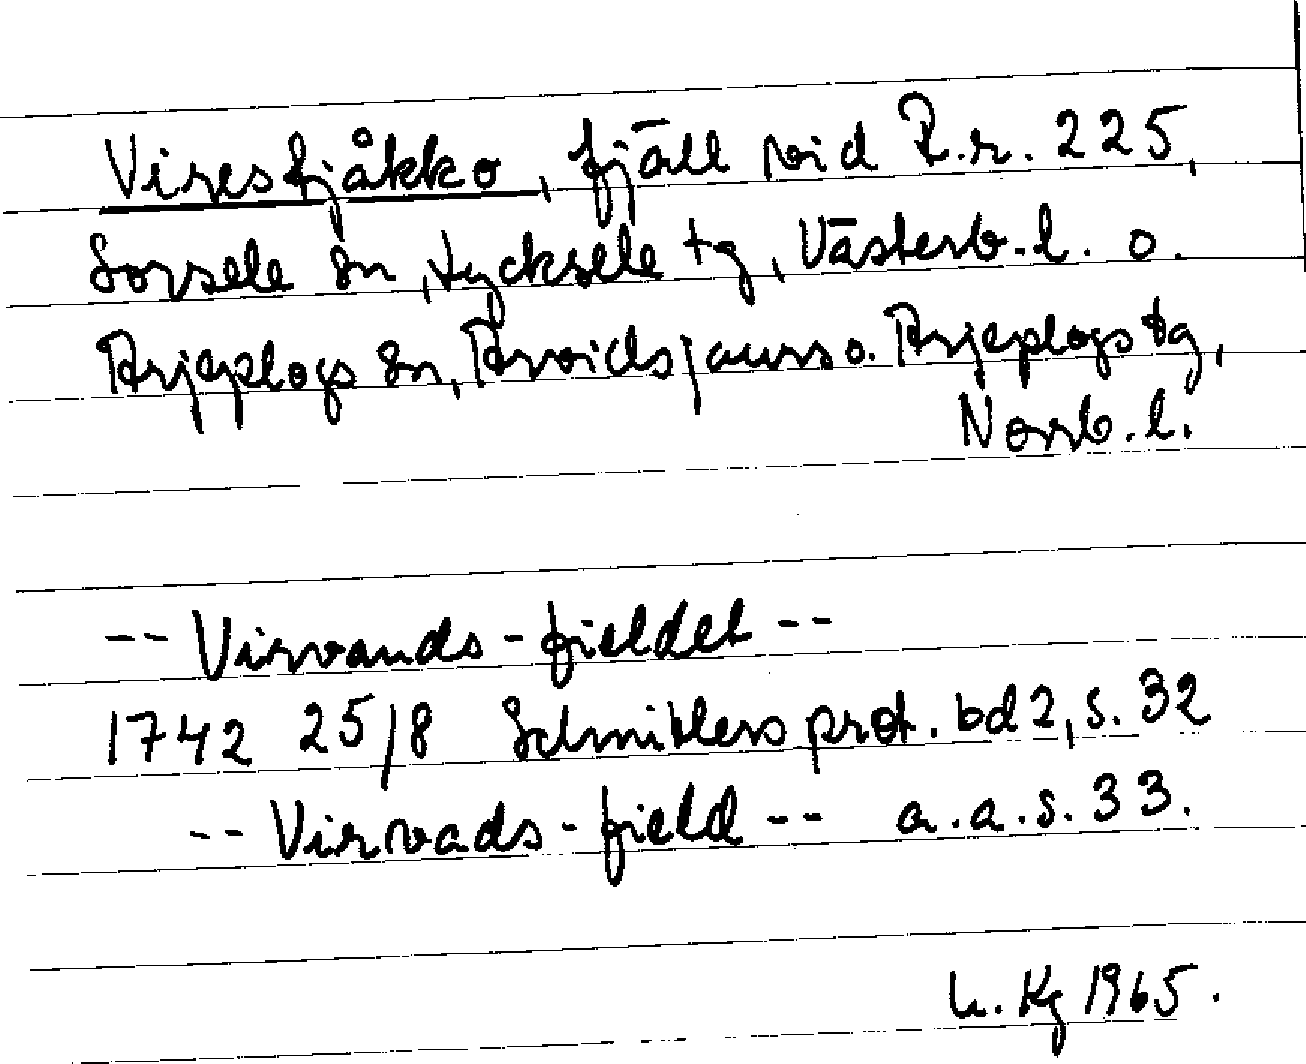 Viresfjåkko, fjäll vid R.r. 225,
Sorsele sn, Lycksele tg, Västerb. l. o.
Arjeplogs sn, Arvidsjaurs o. Arjeplogs tg,
Norrb. l.
-- Virvands-fieldet --
1742 25/8 Schnitlers prot. bd 2, s. 32
-- Virvads-field -- a.a.s. 33.
L. Kg 1965.